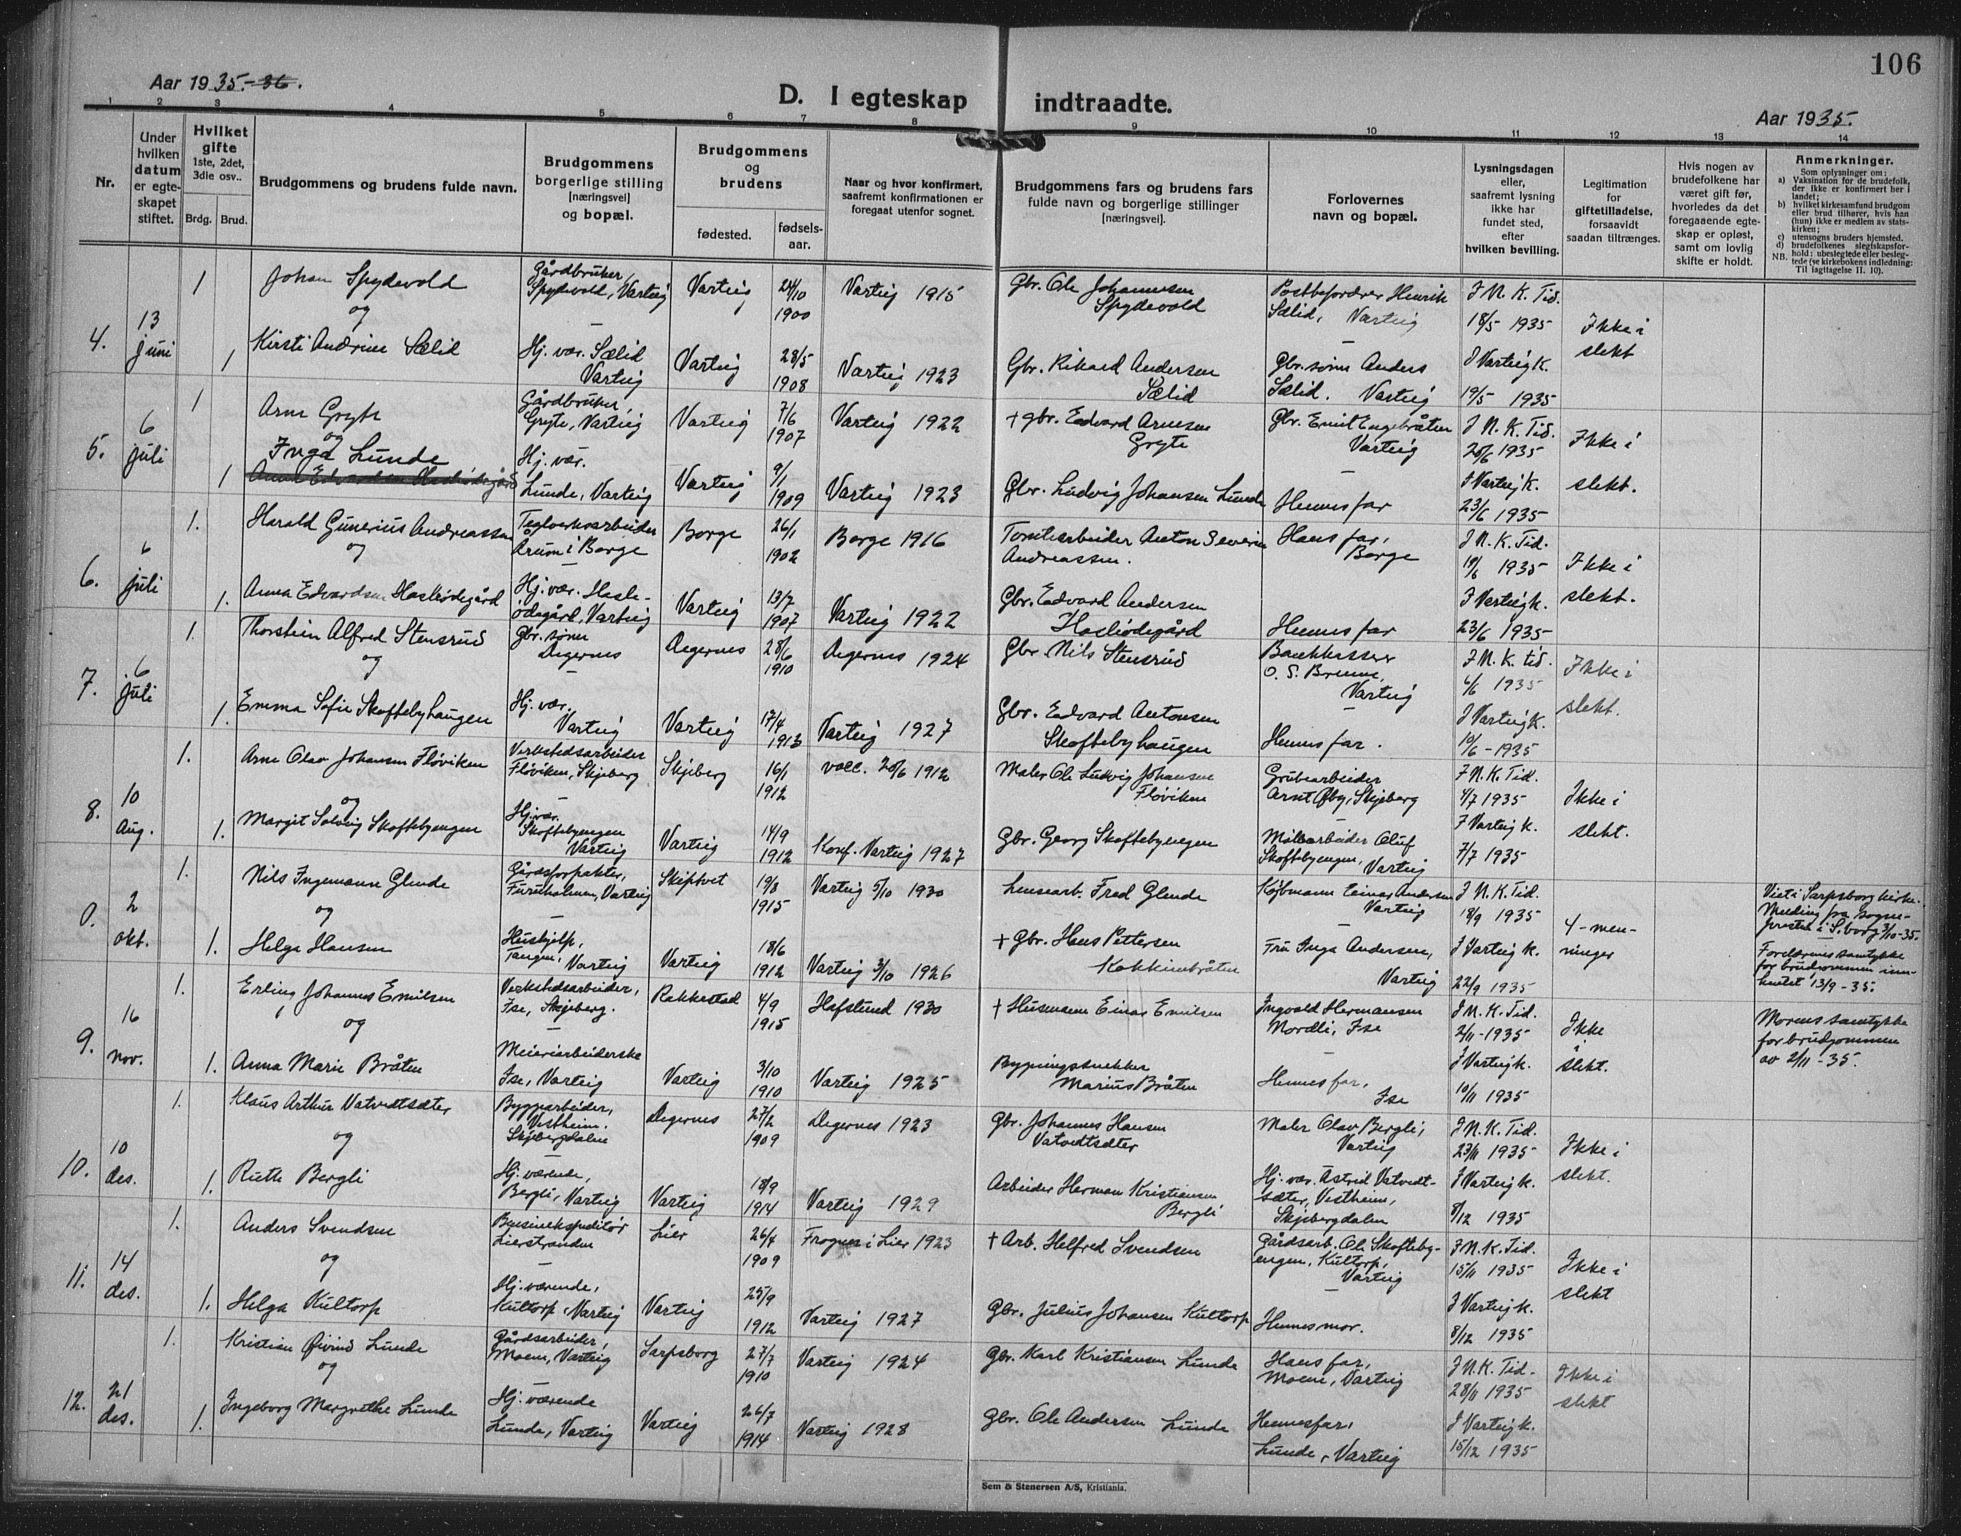 106
Aar 1935.-36.
D. I egteskap indtraadte.
Aar 1935.
1 2 3 4 5 6 7 8 9 10 11 12 13 14
Nr.
Under
hvilken
datum
er egte-
skapet
stiftet.
Hvilket
gifte
1ste, 2det,
3die osv..
Brdg. Brud.
Brudgommens og brudens fulde navn.
Brudgommens
borgerlige stilling
[næringsvei]
og bopæl.
Brudgommens
og
brudens
fødested.
fødsels-
aar.
Naar og hvor konfirmert,
saafremt konfirmationen er
foregaat utenfor sognet.
Brudgommens fars og brudens fars
fulde navn og borgerlige stillinger
[næringsvei].
Forlovernes
navn og bopæl.
Lysningsdagen
eller,
saafremt lysning
ikke har
fundet sted,
efter
hvilken bevilling.
Legitimation
for
giftetilladelse,
forsaavidt
saadan tiltrænges.
Hvis nogen av
brudefolkene har
været gift før,
hvorledes da det
foregaaende egte-
skap er opløst,
samt om lovlig
skifte er holdt.
Anmerkninger.
Som oplysninger om:
a) Vaksination for de brudefolk,
der ikke er konfirmert her i
landet;
b) hvilket kirkesamfund brudgom
eller brud tilhører, hvis han
(hun) ikke er medlem av stats-
kirken;
c) utensogns bruders hjemsted.
d) brudefolkenes slegtskapsfor-
hold: ubeslegtede eller besleg-
tede (se kirkebokens indledning:
NB. Til iagttagelse II. 10).
4.
13
juni
1
Johan Spydevold
og
Gårdbruker,
Spydevold, Varteig
Varteig
24/10
1900
Varteig 1915
Gbr. Ole Johannesen
Spydevold
Postbefordrer Henrik
Sælid, Varteig
I N. K. Tid.
18/5 1935
Ikke i
slekt
1
Kirsti Andrine Sælid
Hj. vær. Sælid
Varteig
Varteig
28/5
1908
Varteig 1923
Gbr. Rikard Andersen
Sælid
Gbr. sønn Anders
Sælid. Varteig
I Varteig K.
19/5 1935
5.
6
juli
1
Arne Gryte
og
Gårdbruker,
Gryte, Varteig
Varteig
7/6
1907
Varteig 1922
+ gbr. Edvard Arnesen
Gryte
Gbr. Emil Engebråten
Varteig
I N. K. Tid.
20/6 1935
Ikke i
slekt.
1
Inga Lunde
Anna Edvardsen Hasleødegård
Hj. vær.
Lunde, Varteig
Varteig
9/1
1909
Varteig 1923
Gbr. Ludvig Johansen Lunde
Hennes far
I Varteig K.
23/6 1935
6.
6
juli
1.
Harald Gunerius Andreassen
og
Teglverksarbeider
Årum i Borge
Borge
26/1
1902
Borge 1916
Tomtearbeider Anton Severin
Andreassen.
Hans far,
Borge
I N. K. Tid.
19/6 1935
Ikke i
slekt.
1.
Anna Edvardsen Hasleødegård
Hj. vær. Hasle-
ødegård, Varteig
Varteig
13/7
1907
Varteig 1922
Gbr. Edvard Andersen
Hasleødegård
Hennes far
I Varteig k.
23/6 1935
7.
6
juli
1.
Thorstein Alfred Stensrud
og
Gbr. sønn
Degernes
Degernes
28/6
1910
Degernes 1924
Gbr. Nils Stensrud
Bankkasserer
O. S. Brenne,
Varteig
I N. K. tid.
4/6 1935
Ikke i
slekt.
1.
Emma Sofie Skoftebyhaugen
Hj. vær.
Varteig
Varteig
17/4
1913
Varteig 1927
Gbr. Edvard Antonsen
Skoftebyhaugen
Hennes far.
I Varteig K.
10/6 - 1935
8.
10
Aug.
1.
Arne Olav Johansen Fløviken
og
Verkstedsarbeider
Fløviken, Skjeberg
Skjeberg
16/1
1912
vacc. 20/6 1912
Maler Ole Ludvig Johansen
Fløviken
Grubearbeider
Arnt Øby, Skjeberg
I N. K. Tid.
4/7 1935
Ikke i
slekt.
1.
Margit Solveig Skoftebyengen
Hj. vær.
Skoftebyengen
Varteig
Varteig
14/9
1912
Konf. Varteig 1927
Gbr. Georg Skoftebyengen
Oluf
Skoftebyengen, Varteig
I Varteig k.
7/7 1935
0.
2
okt.
1.
Nils Ingemann Glende
og
Gårdsforpakter,
Furuholmen, Varteig
Skiptvet
19/8
1915
Varteig 5/10 1930
Fred Glende
Kjøbmann Einar Andersen
Varteig
I N. K. Tid.
18/9 1935
4-men-
ninger
Viet i Sarpsborg kirke.
Melding fra sogne-
presten i S.borg 3/10-35.
1.
Helga Hansen
Hushjelp,
Tangen, Varteig
Varteig
18/6
1912
Varteig 3/10 1926
+ Gbr. Hans Pettersen
Kokkimbråten
Fru Inga Andersen,
Varteig
I Varteig K.
22/9 1935
Foreldrenes samtykke
for brudgommen inn-
hentet 13/9-35.
9.
16
nov.
1.
Erling Johannes Emilsen
og
Verkstedsarbeider,
Ise, Skjeberg.
Rakkestad
4/9
1915
Hafslund 1930
+ Husmann Einar Emilsen
Ingvald Hermansen
Nordli, Ise
I N. K. Tid.
2/11-1935
Ikke i
slekt.
Morens samtykke
for brudgommen
av 2/11-35.
1.
Anna Marie Bråten
Meieriarbeiderske
Ise, Varteig
Varteig
3/10
1910
Varteig 1925
Bygningssnekker
Marius Bråten
Hennes far,
Ise
I Varteig k.
10/11 1935
10.
10
des.
1.
Klaus Arthur Vatvedtsæter
og
Byggarbeider,
Vestheim.
Skjebergdalen
Degernes
27/2
1909
Degernes 1923
Gbr. Johannes Hansen
Vatvedtsæter
Maler Olav Bergli,
Varteig
I N. K. Tid.
23/11 1935
Ikke i
slekt.
1.
Ruth Bergli
Hj. værende,
Bergli, Varteig
Varteig
18/9
1914
Varteig 1929
Arbeider Herman Kristiansen
Bergli
Hj. vær. Astrid Vatvedt-
sæter, Vestheim,
Skjebergdalen
I Varteig K.
8/12 1935
11.
14
des.
1.
Anders Svendsen
og
Bensinekspeditør
Lierstranden
Lier
26/7
1909
Frogner i Lier 1923
+ Arb. Helfred Svendsen
Gårdsarb. Ole Skofteby-
engen, Kultorp,
Varteig
I N. K. Tid.
15/11 1935
Ikke i
slekt
1.
Helga Kultorp
Hj. værende,
Kultorp, Varteig
Varteig
25/9
1912
Varteig 1927
Gbr. Julius Johansen Kultorp
Hennes mor.
I Varteig k.
8/12 1935
12.
21
des.
1.
Kristian Øivind Lunde
og
Gårdsarbeider,
Moene, Varteig
Sarpsborg
27/7
1910
Varteig 1924
Gbr. Karl Kristiansen Lunde
Hans far,
Moene, Varteig
I N. K. Tid.
28/11 1935
Ikke i
slekt
1.
Ingeborg Margrethe Lunde
Hj. værende
Lunde, Varteig
Varteig
26/7
1914
Varteig 1928
Gbr. Ole Andersen Lunde
Hennes far,
Lunde, Varteig
I Varteig k.
15/12 1935
Sem & Stenersen A/S, Kristiania.